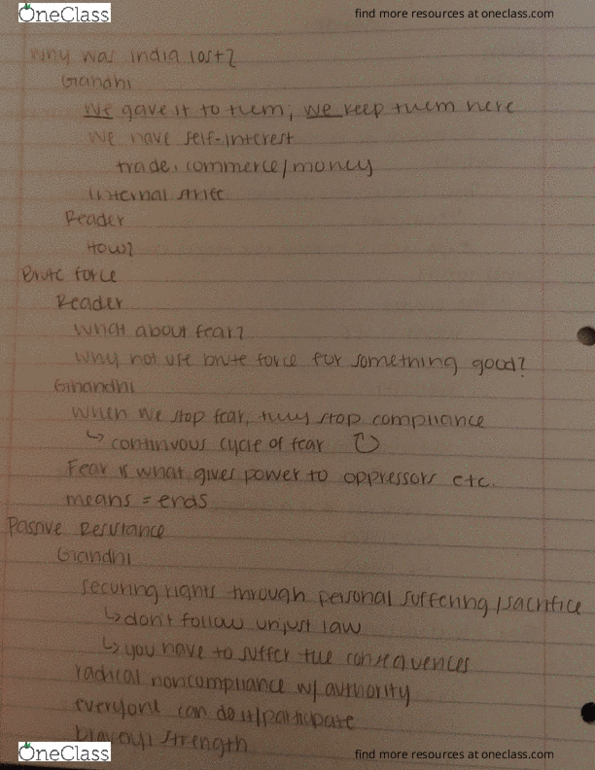 OneClass
find more resources at oneclass.com
Why was india lost?
Gandhi
We gave it to them, we keep them here
We have self-interest
trade, commerce/money
Internal strife
Reader
How?
Brute force
Reader
What about fear?
Why not use brute force for something good?
Ghandhi
When we stop fear, they stop compliance
↳ continuous cycle of fear ↻
Fear is what gives power to oppressors etc.
means = ends
Passive Resistance
Gandhi
Securing rights through personal suffering/sacrifice
↳ don't follow unjust law
↳ you have to suffer the consequences
radical noncompliance w/ authority
everyone can do it/participate
bravery/strength
OneClass
find more resources at oneclass.com